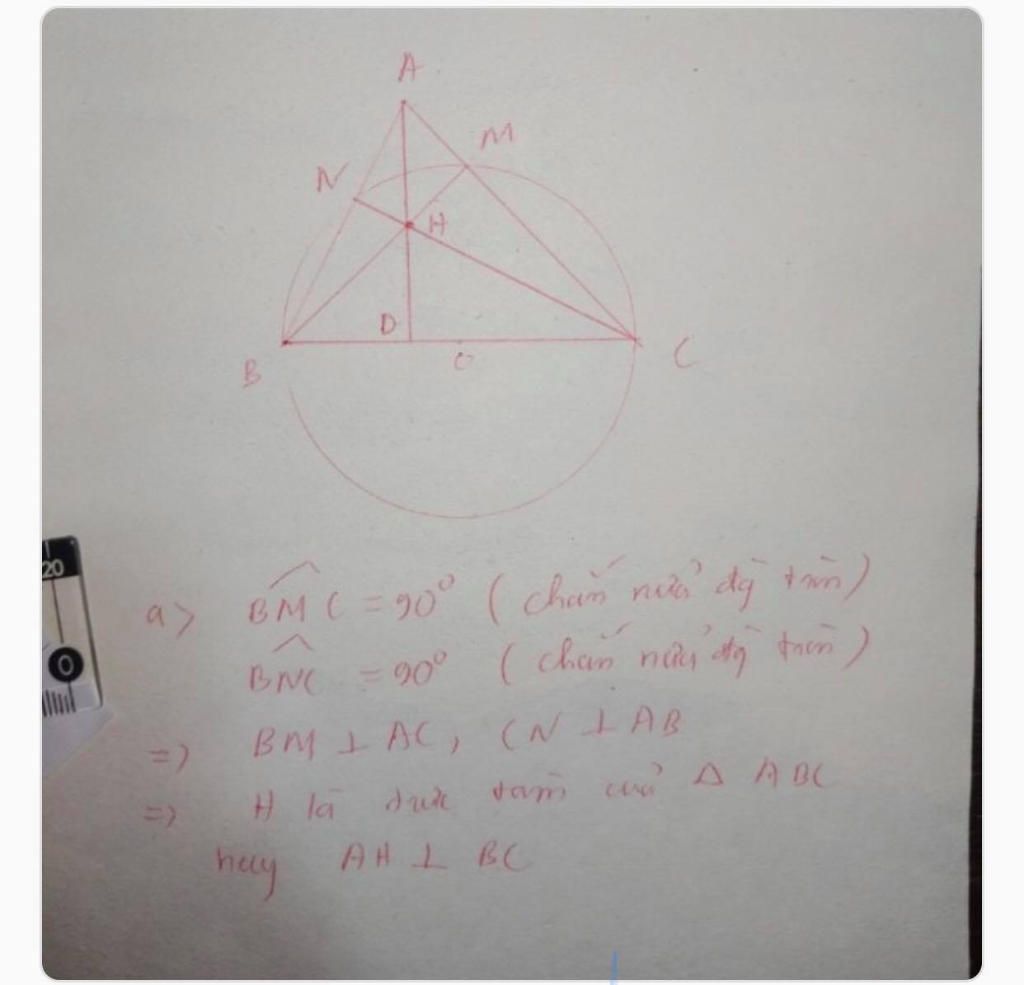 A
M
N
H
D
O
B
C
20
0
a> BMC = 90° (chắn nửa đg tròn)
BNC = 90° (chắn nửa đg tròn)
=> BM ⊥ AC, CN ⊥ AB
=> H là trực tâm của Δ ABC
hay AH ⊥ BC